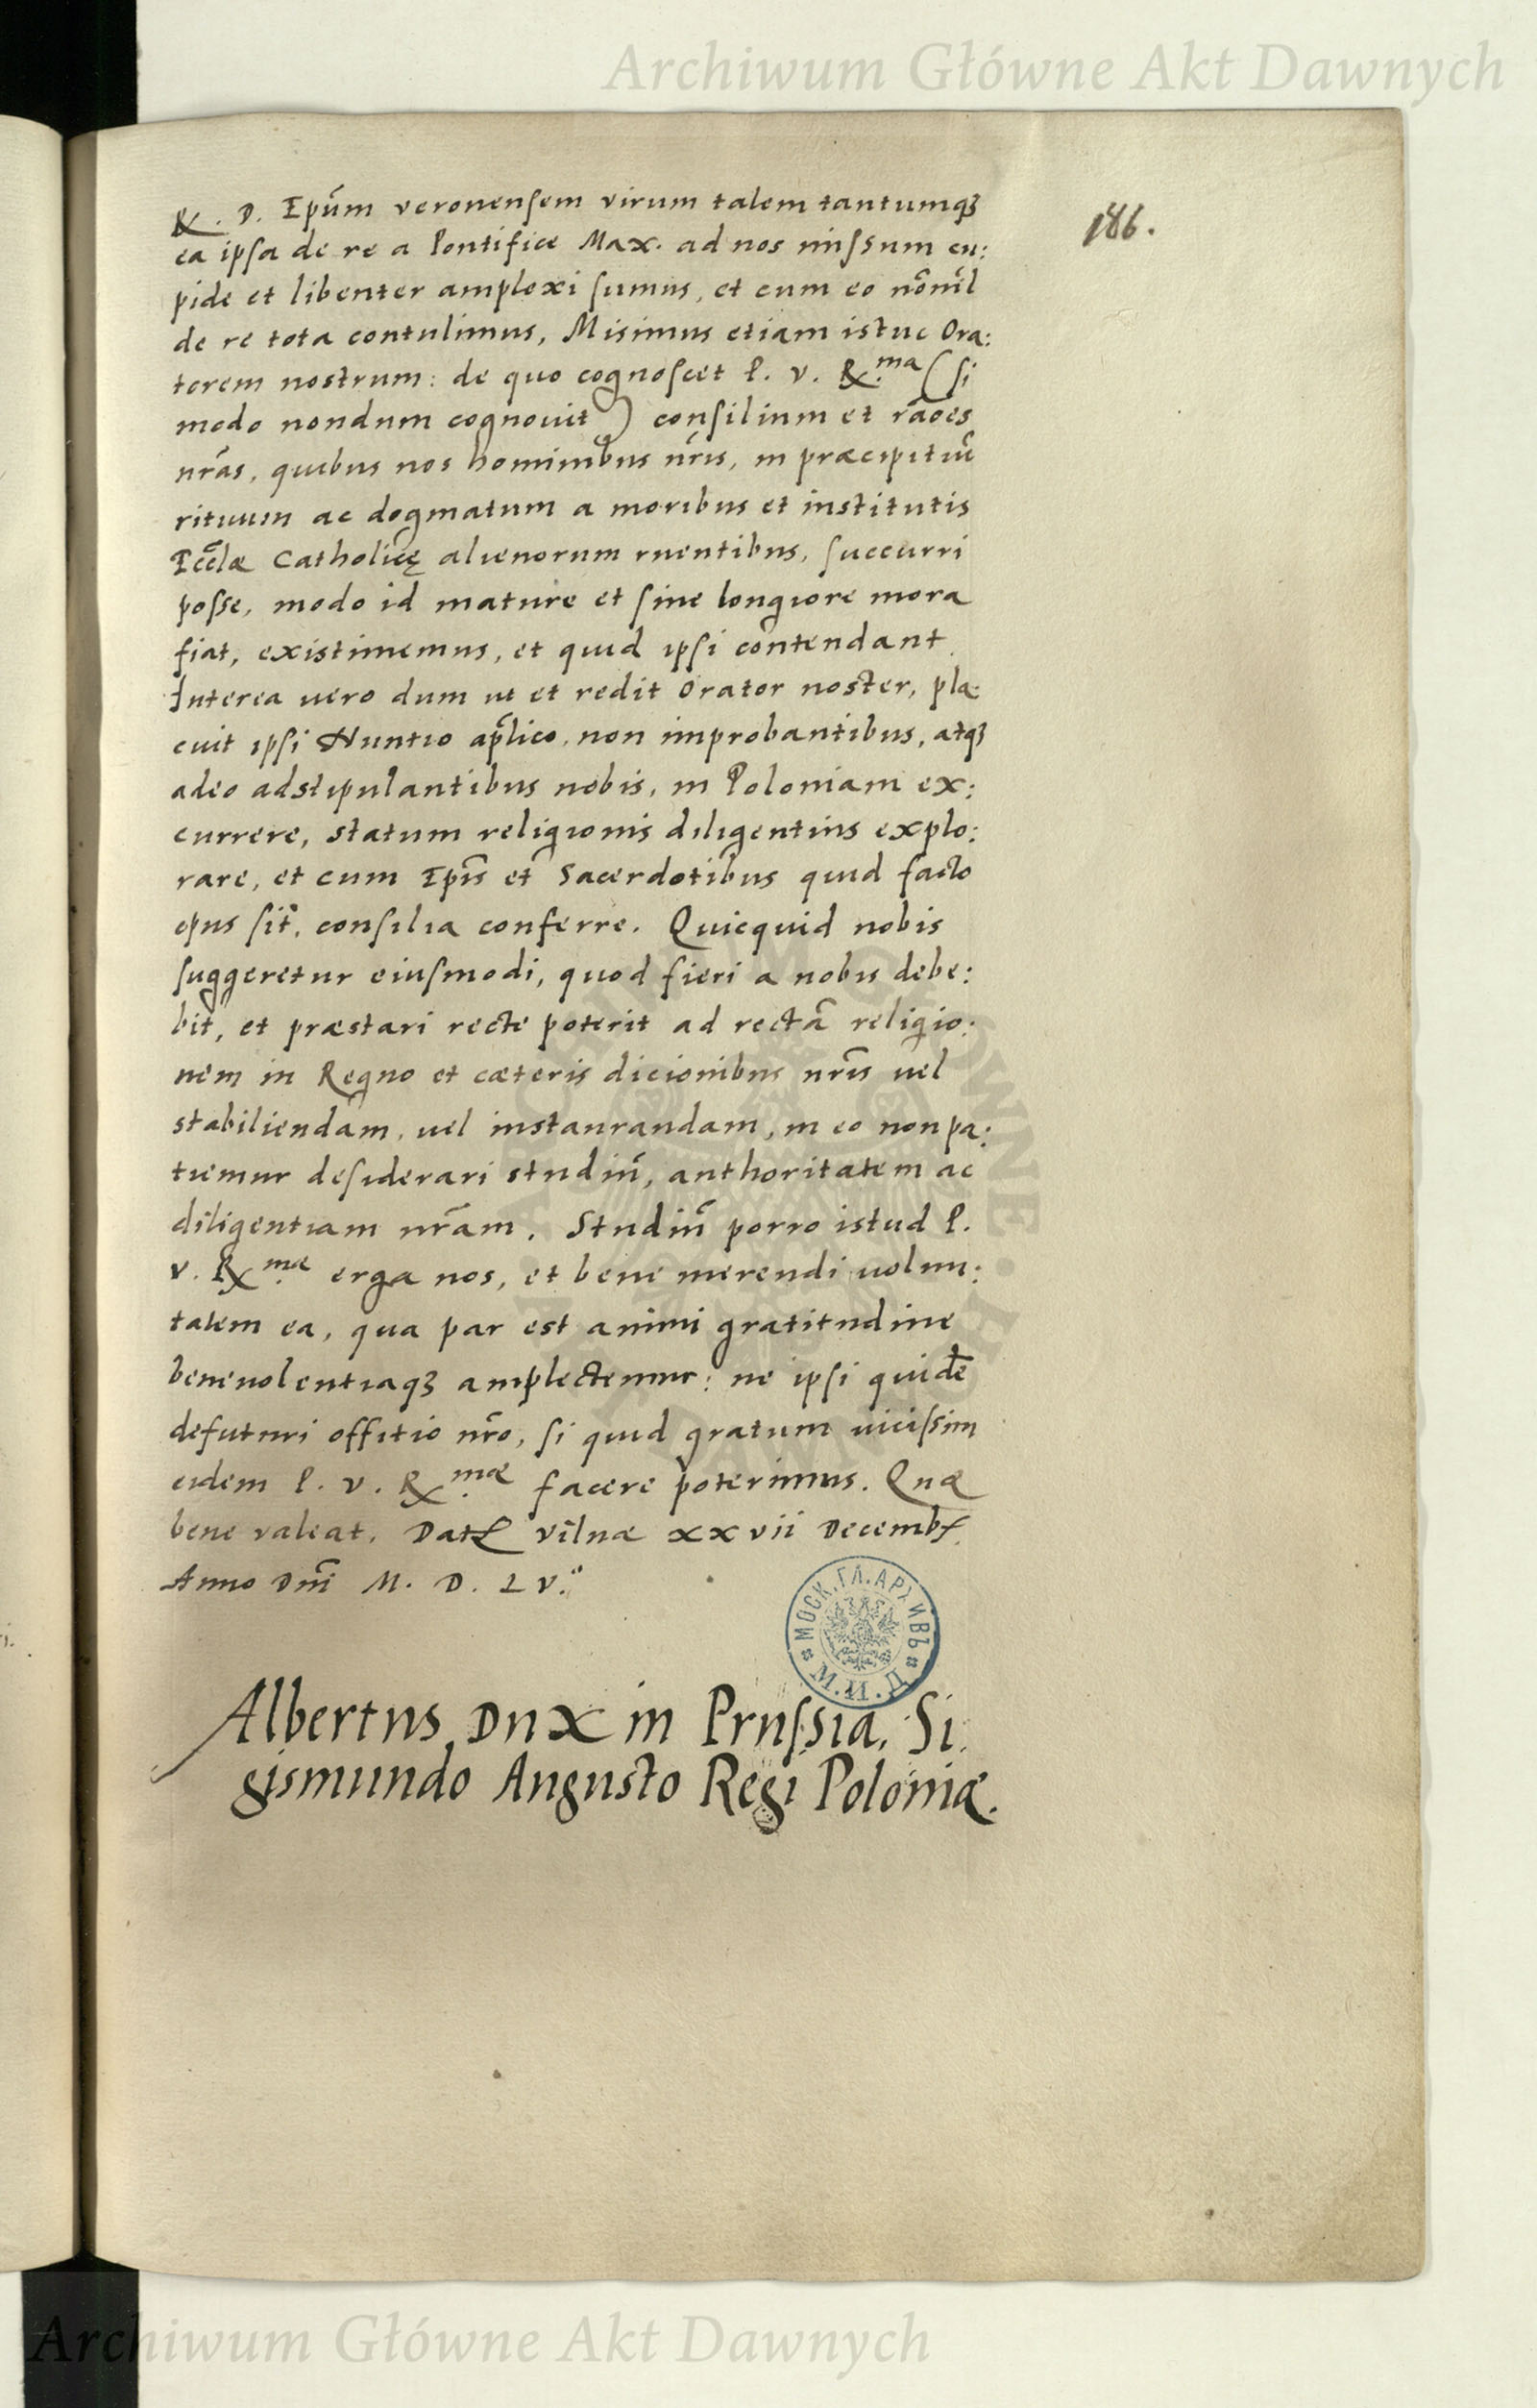 Archiwum Główne Akt Dawnych
186.
R. D. Epũm veronensem virum talem tantumqꝫ
ea ipsa de re a Pontifice Max. ad nos missum cu:
pide et libenter amplexi sumus, et cum eo nõnihil
de re tota contulimus, Misimus etiam istuc Ora:
torem nostrum: de quo cognoscet P. V. R.ma (si
modo nondum cognouit) consilium et rãoes
nr̃as, quibus nos hominibus nr̃is, in præcipitiũ
rituum ac dogmatum a moribus et institutis
Eccl̃æ Catholicę alienorum ruentibus, succurri
posse, modo id mature et sine longiore mora
fiat, existimemus, et quid ipsi contendant.
Interea uero dum it et redit Orator noster, pla:
cuit ipsi Nuntio ap̃lico, non improbantibus, atqꝫ
adeo adstipulantibus nobis, in Poloniam ex:
currere, statum religionis diligentius explo:
rare, et cum Ep̃is et Sacerdotibus quid facto
opus sit, consilia conferre. Quicquid nobis
suggeretur eiusmodi, quod fieri a nobis debe:
bit, et præstari recte poterit ad rectã religio:
nem in Regno et cæteris dicionibus nr̃is uel
stabiliendam, uel instaurandam, in eo non pa:
tiemur desiderari studiũ, authoritatem ac
diligentiam nr̃am. Studiũ porro istud P.
V. R.mæ erga nos, et bene merendi uolun:
tatem ea, qua par est animi gratitudine
beneuolentiaqꝫ amplectemur: ne ipsi quidẽ
defuturi offitio nr̃o, si quid gratum uicissim
eidem P. V. R.mæ facere poterimus. Quæ
bene valeat. Dat̃ Vilnæ xxvii Decemb̃.
Anno Dñi M. D. LV.
МОСК. ГЛ. АРХИВЪ М. И. Д.
Albertus Dux in Prussia, Si
gismundo Augusto Regi Poloniæ.
Archiwum Główne Akt Dawnych